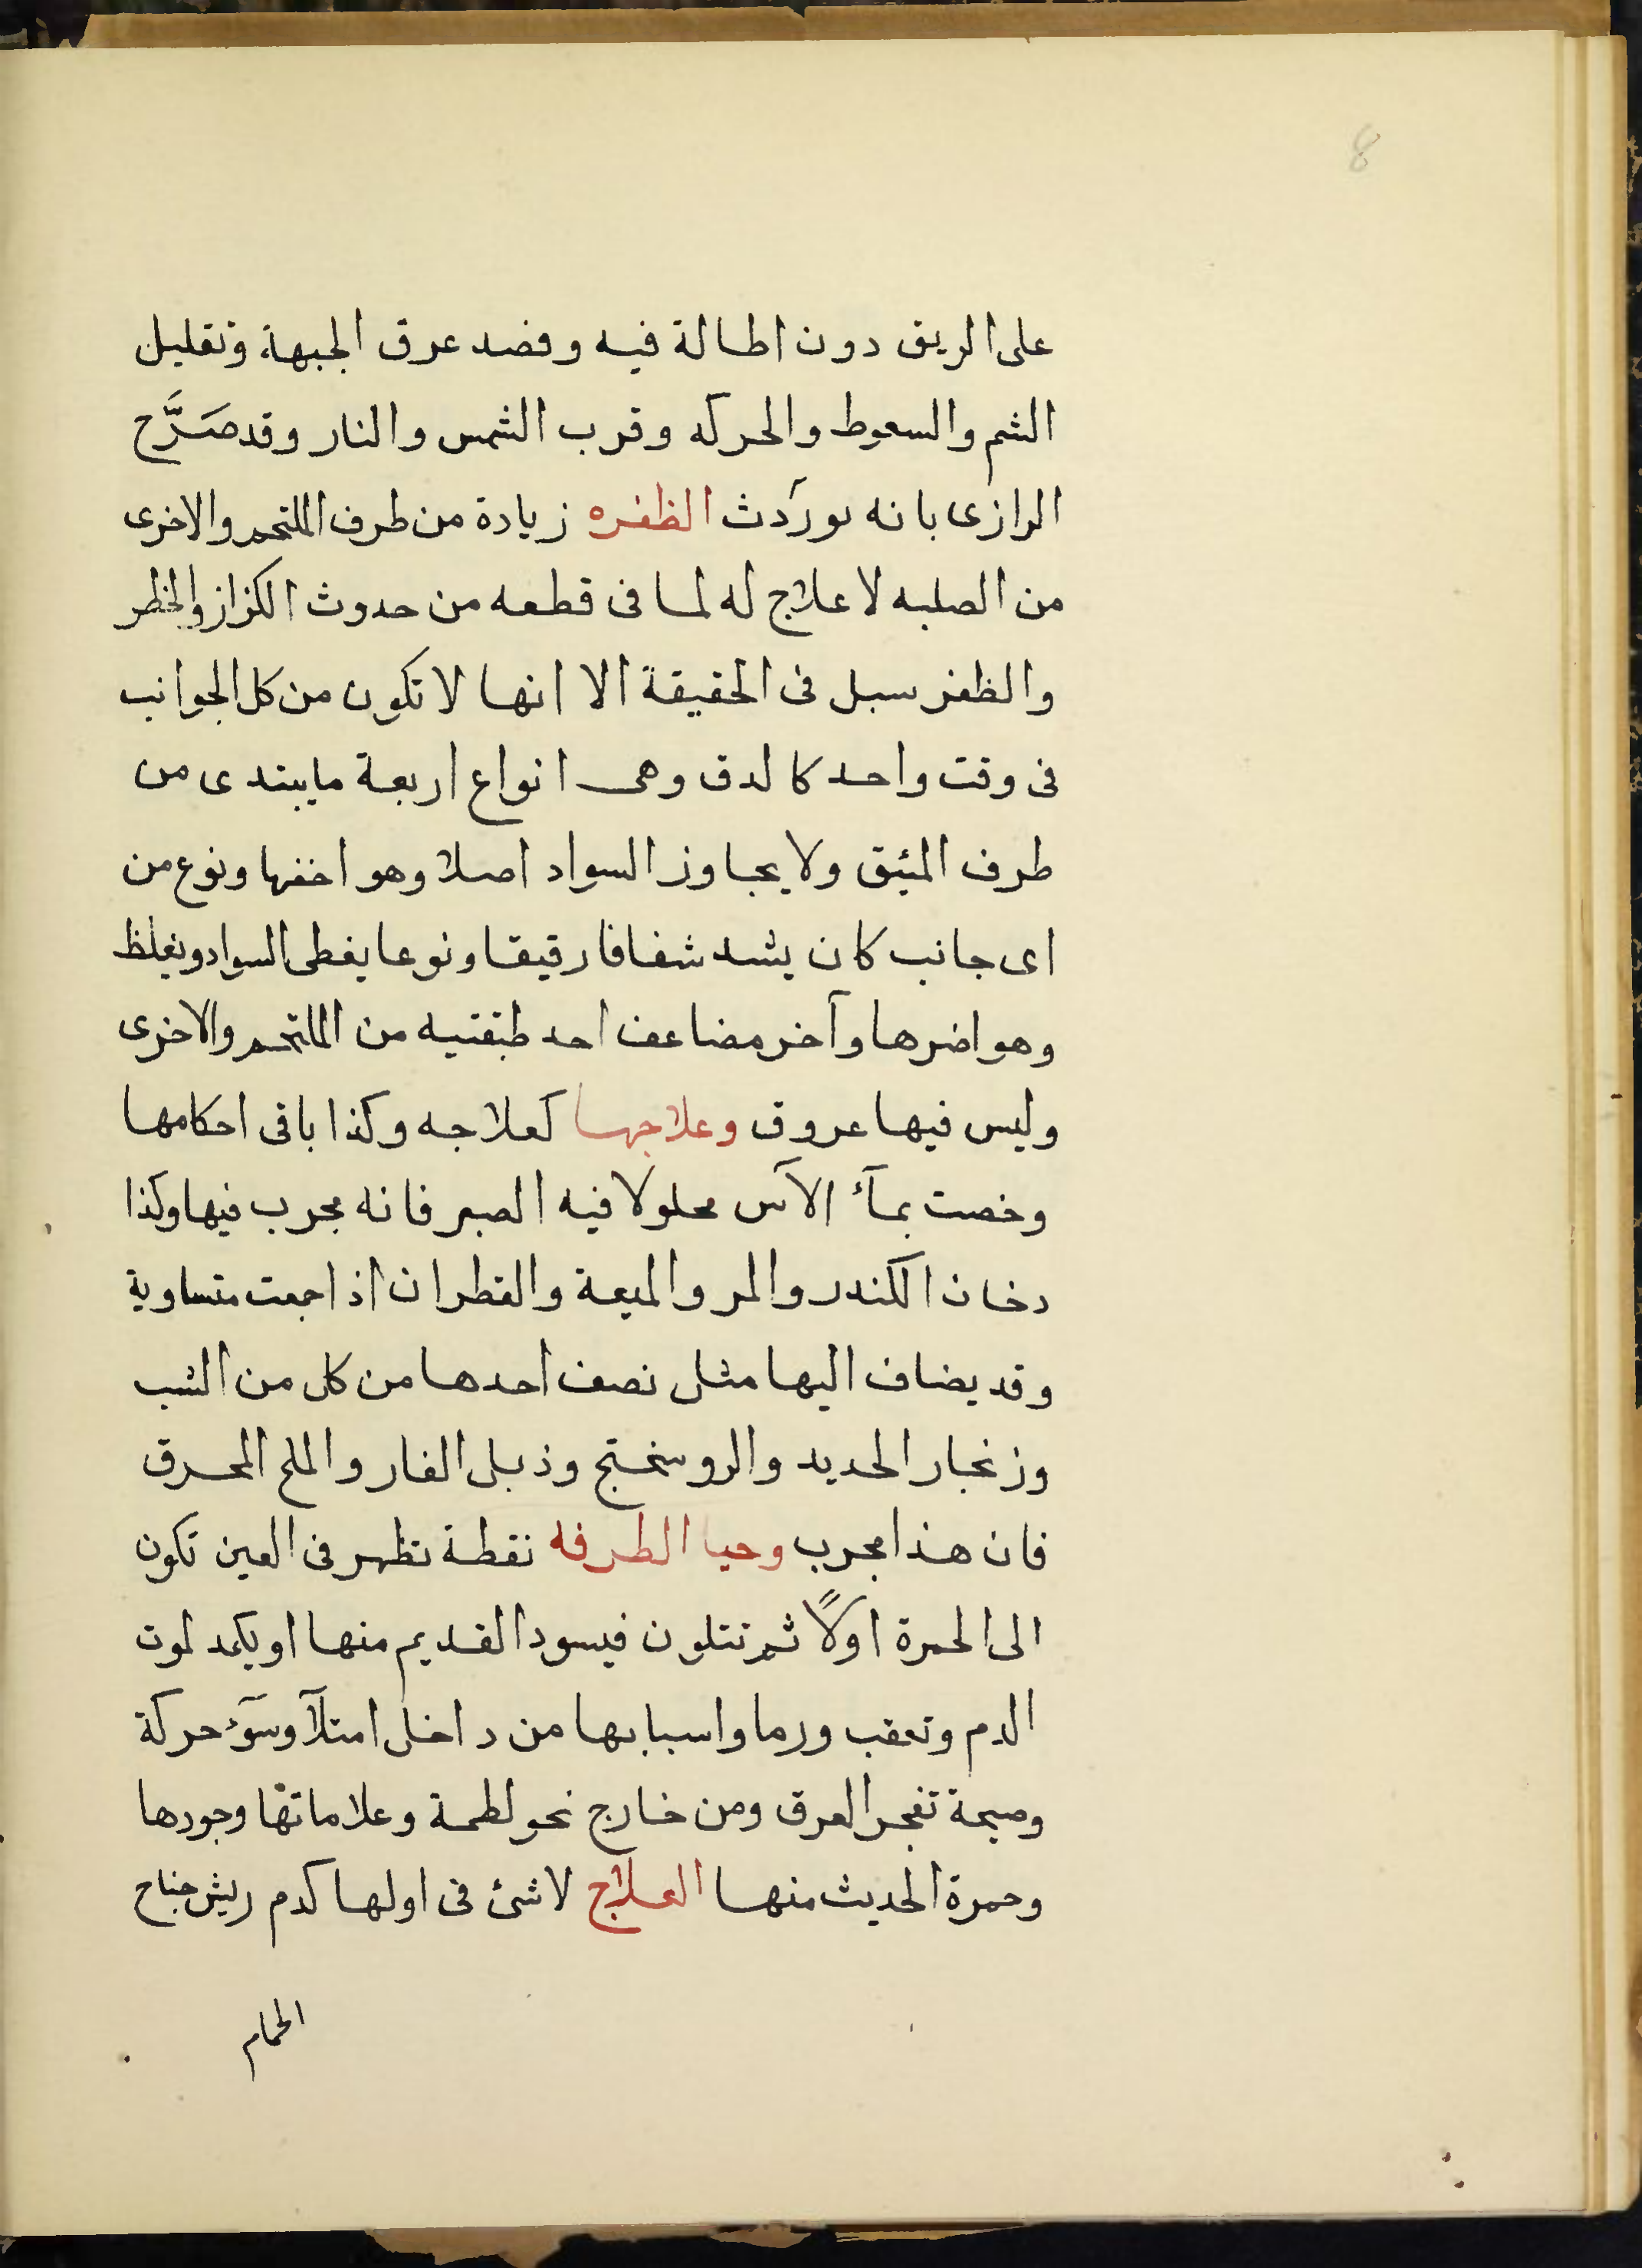 8
على الريق دون اطالة فيه وفصد عرق الجبهة وتقليل
الشم والسعوط والحركه وقرب الشمس والنار وقد صَرَّح
الرازى بانه يورَدث الظفره زيادة من طرف الملتحم والاخرى
من الصلبه لا علاج له لما فى قطعه من حدوث الكزاز والخطر
والظفر سبل فى الحقيقة الا انها لا تكون من كل الجوانب
فى وقت واحد كالدق وهى انواع اربعة ما يبتدى من
طرف المئيق ولا يجاوز السواد اصلا وهو اخفها ونوع من
اى جانب كان يشد شفافا رقيقا ونوعا يغطى السواد ويغلظ
وهو اضرها وآخر مضاعف احد طبقتيه من الملتحم والاخرى
وليس فيها عروق وعلاجها كعلاجه وكذا باقى احكامها
وخصت بمآء الآس محلولا فيه الصبر فانه مجرب فيها وكذا
دخان الكندر والمر والميعة والقطران اذا جمعت متساوية
وقد يضاف اليها مثل نصف احدها من كل من الشب
وزنجار الحديد والروسختج وذبل الفار والملح المحرق
فان هذا مجرب وحيا الطرفه نقطة تظهر فى العين تكون
الى الحمرة اولاً ثم تتلون فيسود القديم منها او يكمد لموت
الدم وتعقب ورما واسبابها من داخل امتلآ وسوٓء حركة
وصيحة تفجر العرق ومن خارج نحو لطمة وعلاماتها وجودها
وحمرة الحديث منها العلاج لا شئ فى اولها كدم ريش جناح
الحمام